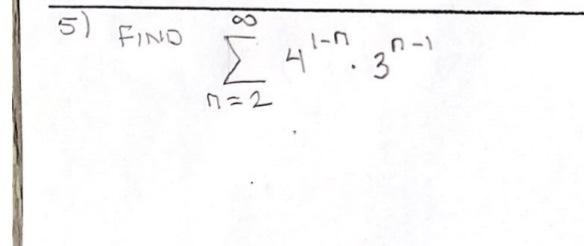 5) FIND ∞ Σ n=2 4^{1-n} · 3^{n-1}